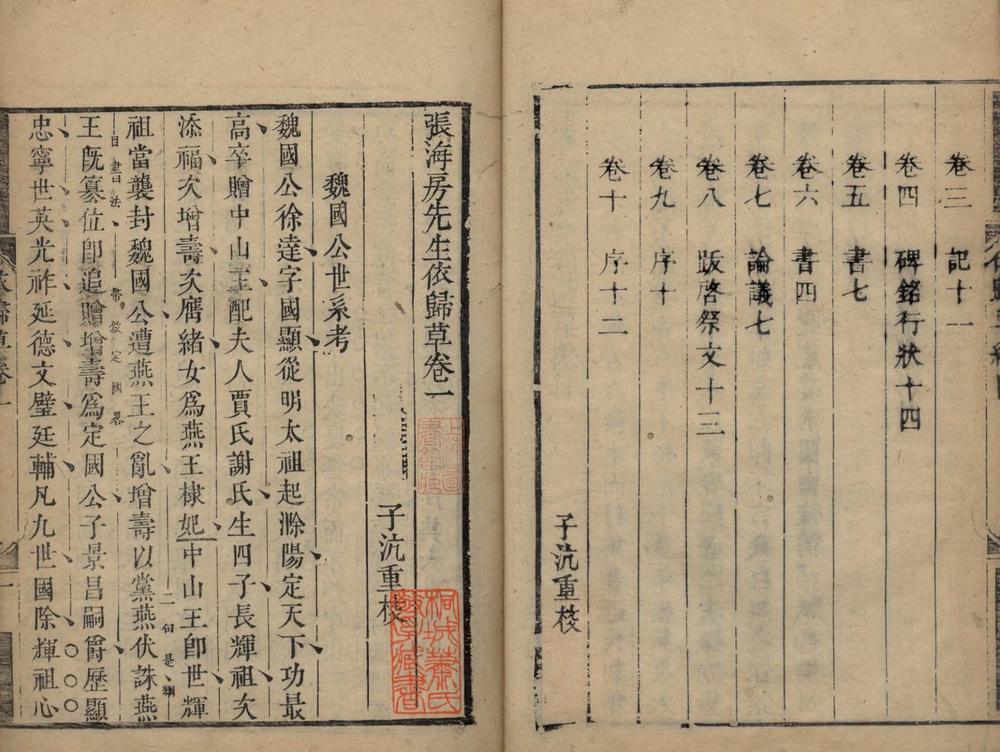 卷三　記十一
卷四　碑銘行狀十四
卷五　書七
卷六　書四
卷七　論議七
卷八　跋啓祭文十三
卷九　序十
卷十　序十二
子沆重校
張海房先生依歸草卷一
子沆重校
魏國公世系考
魏國公徐達字國顯從明太祖起滁陽定天下功最
高卒贈中山王配夫人賈氏謝氏生四子長輝祖次
添福次增壽次膺緒女爲燕王棣妃中山王卽世輝
二句是綱
祖當襲封魏國公遭燕王之亂增壽以黨燕伏誅燕
王旣篡位卽追贈增壽爲定國公子景昌嗣爵歷顯
目書法
帶敘定國畧
忠寧世英光祚延德文璧廷輔凡九世國除輝祖心
桐城蕭氏
藏書